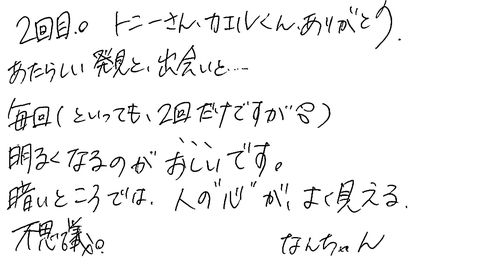 2回目。トニーさん、カエルくん、ありがとう.
あたらしい発見と、出会いと…
毎回(といっても、2回だけですが)
明るくなるのがおしいです。
暗いところでは、人の"心"が、よく見える.
不思議。
なんちゃん